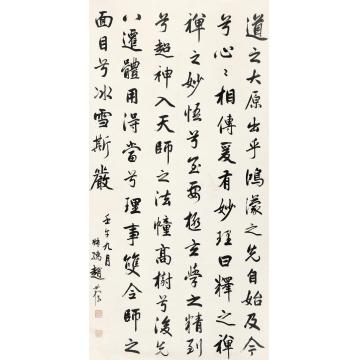 道之大原出乎鴻濛之先自始及今
兮心〻相傳爰有妙理曰釋之禪
禪之妙悟兮至要極玄學之精到
兮超神入天師之法幢高樹兮後先
八遷體用得當兮理事雙全師之
面目兮冰雪斯嚴
壬午九月
趙